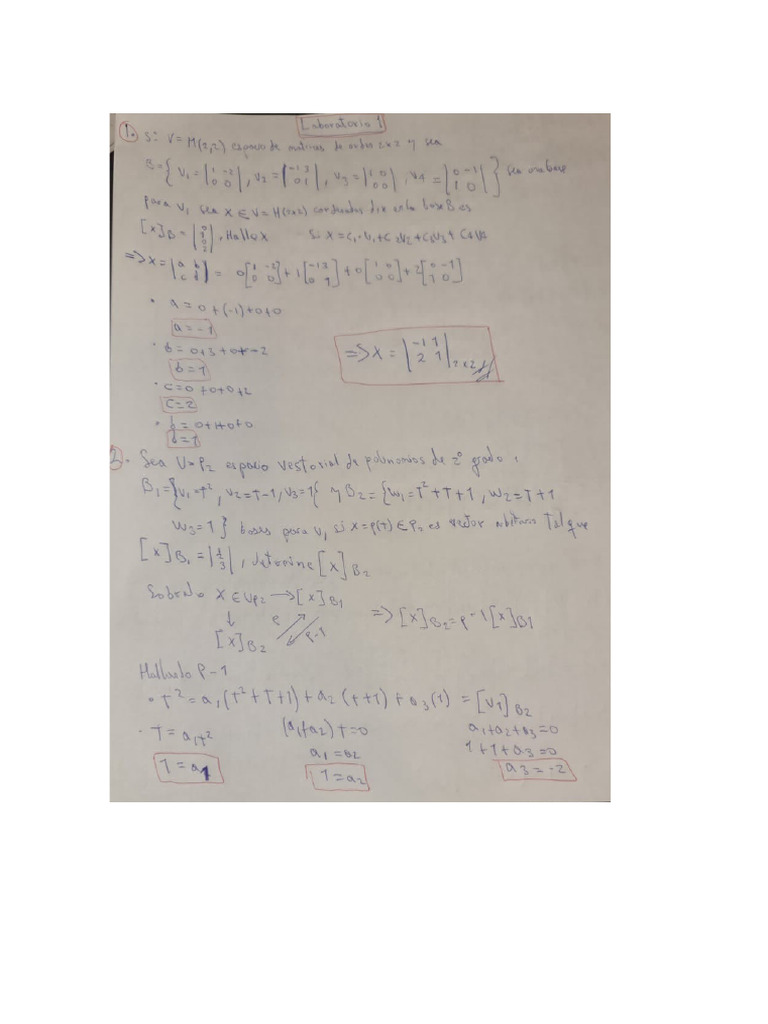 Laboratorio 1
1. Si V = M(2,2) espacio de matrices de orden 2x2 y sea
B = { V₁ = |1 -2; 0 0| , V₂ = |-1 3; 0 1| , V₃ = |1 0; 0 0| , V₄ = |0 -1; 1 0| } sea una base
para V, sea X ∈ V = M(2x2) coordenadas de x en la base B es
[X]B = |0; 1; 0; 2| , Hallo X Si X = C₁·V₁ + C₂V₂ + C₃V₃ + C₄V₄
=> X = |a b; c d| = 0[1 -2; 0 0] + 1[-1 3; 0 1] + 0[1 0; 0 0] + 2[0 -1; 1 0]
• a = 0 + (-1) + 0 + 0
a = -1
• b = 0 + 3 + 0 + -2
b = 1
=> X = |-1 1; 2 1| 2x2
• c = 0 + 0 + 0 + 2
c = 2
• d = 0 + 1 + 0 + 0
d = 1
2. Sea V = P₂ espacio vestorial de polinomios de 2° grado
B₁ = {V₁ = t², V₂ = T-1, V₃ = 1{ y B₂ = {W₁ = T² + T + 1, W₂ = T + 1
W₃ = 1} bases para V, si X = p(T) ∈ P₂ es vector Tal que
[X]B₁ = |1; 2; 3| , determine [X]B₂
X ∈ VP₂ → [X]B₁
↓ P P-1 => [X]B₂ = P-1[X]B1
[X]B₂
Hallando P-1
• t² = a₁(t² + T + 1) + a₂(t + 1) + a₃(1) = [V1]B₂
• T = a₁t² (a₁ + a₂)t = 0 a₁ + a₂ + a₃ = 0
a₁ = a₂ 1 + 1 + a₃ = 0
1 = a₁ 1 = a₂ a₃ = -2